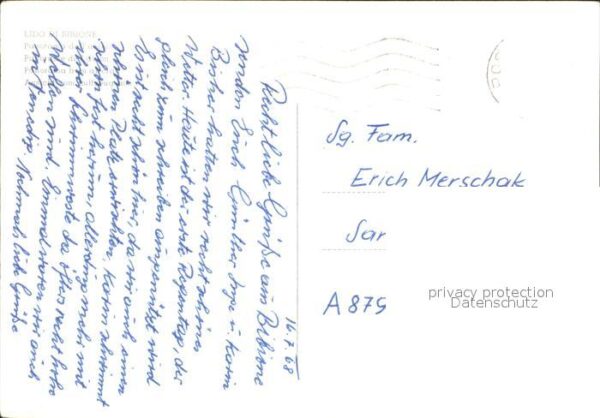 LIDO DI BIBIONE
16.7.68
Recht liebe Grüße aus Bibione
senden Erich Günther Inge u. Karin
Bisher hatten wir recht schönes
Wetter. Heute ist der erste Regentag, der
gleich zum schreiben ausgenützt wird
Es ist recht schön hier, da wir auch einen
schönen Platz erwischten. Karin schwimmt
schon fest herum, allerdings nicht mit
der Schwimmweste da öfters recht hohe
Wellen sind. Einmal waren wir auch
in Venedig. Nochmals liebe Grüße
Sg. Fam.
Erich Merschak
Sar
A 879
privacy protection
Datenschutz